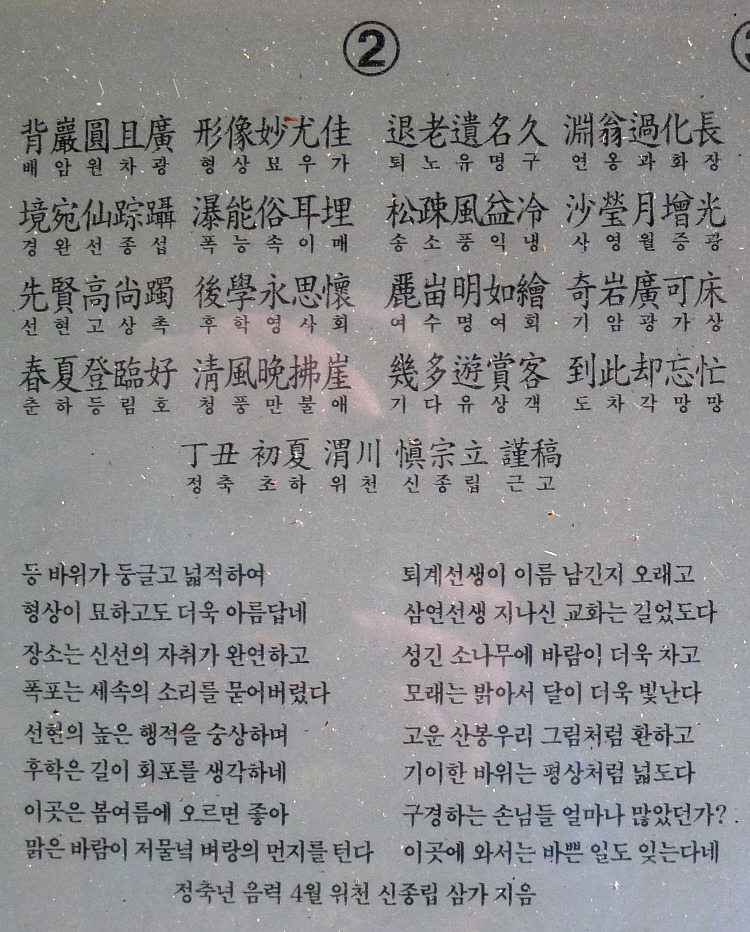 ②
背巖圓且廣 形像妙尤佳 退老遺名久 淵翁過化長
배암원차광 형상묘우가 퇴노유명구 연옹과화장
境宛仙踪躡 瀑能俗耳埋 松疎風益冷 沙瑩月增光
경완선종섭 폭능속이매 송소풍익냉 사영월증광
先賢高尙躅 後學永思懷 麗峀明如繪 奇岩廣可床
선현고상촉 후학영사회 여수명여회 기암광가상
春夏登臨好 清風晩拂崖 幾多遊賞客 到此却忘忙
춘하등림호 청풍만불애 기다유상객 도차각망망
丁丑 初夏 渭川 愼宗立 謹稿
정축 초하 위천 신종립 근고
등 바위가 둥글고 넓적하여
형상이 묘하고도 더욱 아름답네
장소는 신선의 자취가 완연하고
폭포는 세속의 소리를 묻어버렸다
선현의 높은 행적을 숭상하며
후학은 길이 회포를 생각하네
이곳은 봄여름에 오르면 좋아
맑은 바람이 저물녘 벼랑의 먼지를 턴다
퇴계선생이 이름 남긴지 오래고
삼연선생 지나신 교화는 길었도다
성긴 소나무에 바람이 더욱 차고
모래는 밝아서 달이 더욱 빛난다
고운 산봉우리 그림처럼 환하고
기이한 바위는 평상처럼 넓도다
구경하는 손님들 얼마나 많았던가?
이곳에 와서는 바쁜 일도 잊는다네
정축년 음력 4월 위천 신종립 삼가 지음